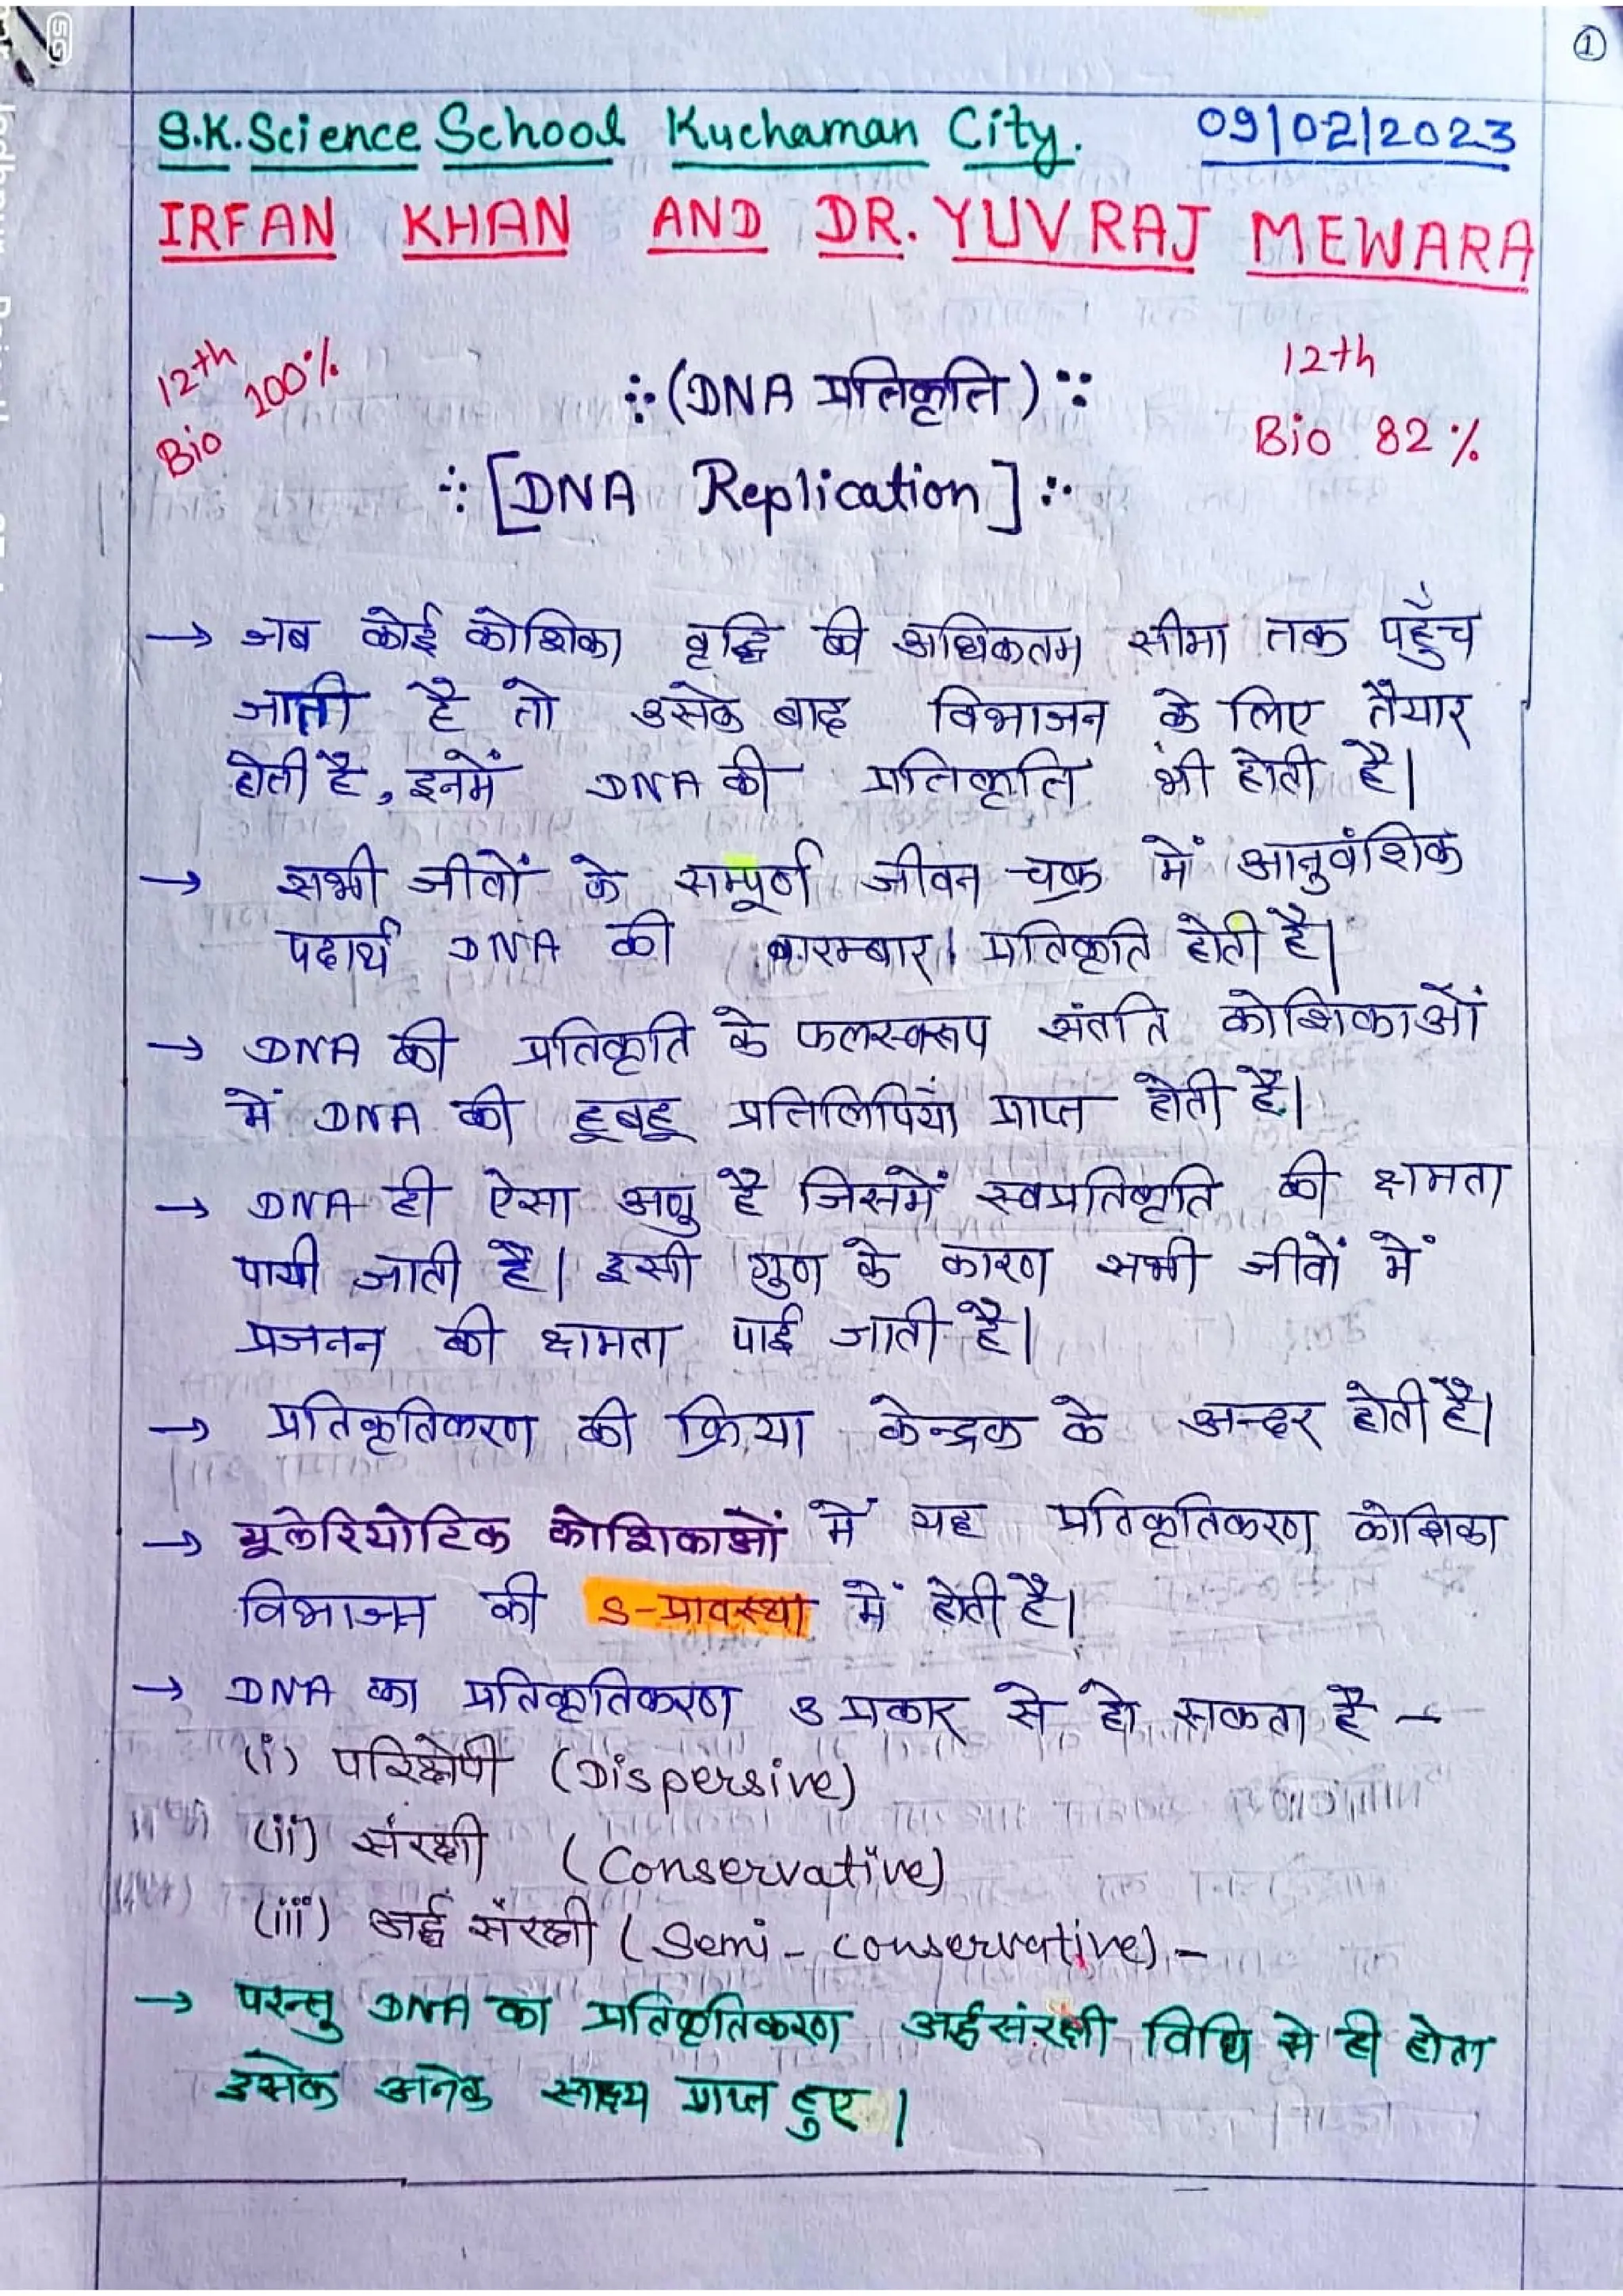 ①
S.K. Science School Kuchaman City. 09/02/2023
IRFAN KHAN AND DR. YUVRAJ MEWARA
12th Bio 100%
12th
Bio 82%
(DNA प्रतिकृति)
[DNA Replication]
→ जब कोई कोशिका वृद्धि की अधिकतम सीमा तक पहुँच
जाती है तो उसके बाद विभाजन के लिए तैयार
होती है, इनमें DNA की प्रतिकृति भी होती है।
→ सभी जीवों के सम्पूर्ण जीवन चक्र में आनुवंशिक
पदार्थ DNA की बारम्बार प्रतिकृति होती है।
→ DNA की प्रतिकृति के फलस्वरूप संतति कोशिकाओं
में DNA की हूबहू प्रतिलिपियाँ प्राप्त होती है।
→ DNA ही ऐसा अणु है जिसमें स्वप्रतिकृति की क्षमता
पायी जाती है। इसी गुण के कारण सभी जीवों में
प्रजनन की क्षमता पाई जाती है।
→ प्रतिकृतिकरण की क्रिया केन्द्रक के अन्दर होती है।
→ यूकेरियोटिक कोशिकाओं में यह प्रतिकृतिकरण कोशिका
विभाजन की S-प्रावस्था में होती है।
→ DNA का प्रतिकृतिकरण 3 प्रकार से हो सकता है –
(i) परिक्षेपी (Dispersive)
(ii) संरक्षी (Conservative)
(iii) अर्द्ध संरक्षी (Semi-conservative) –
→ परन्तु DNA का प्रतिकृतिकरण अर्द्धसंरक्षी विधि से ही होता
इसके अनेक साक्ष्य प्राप्त हुए।